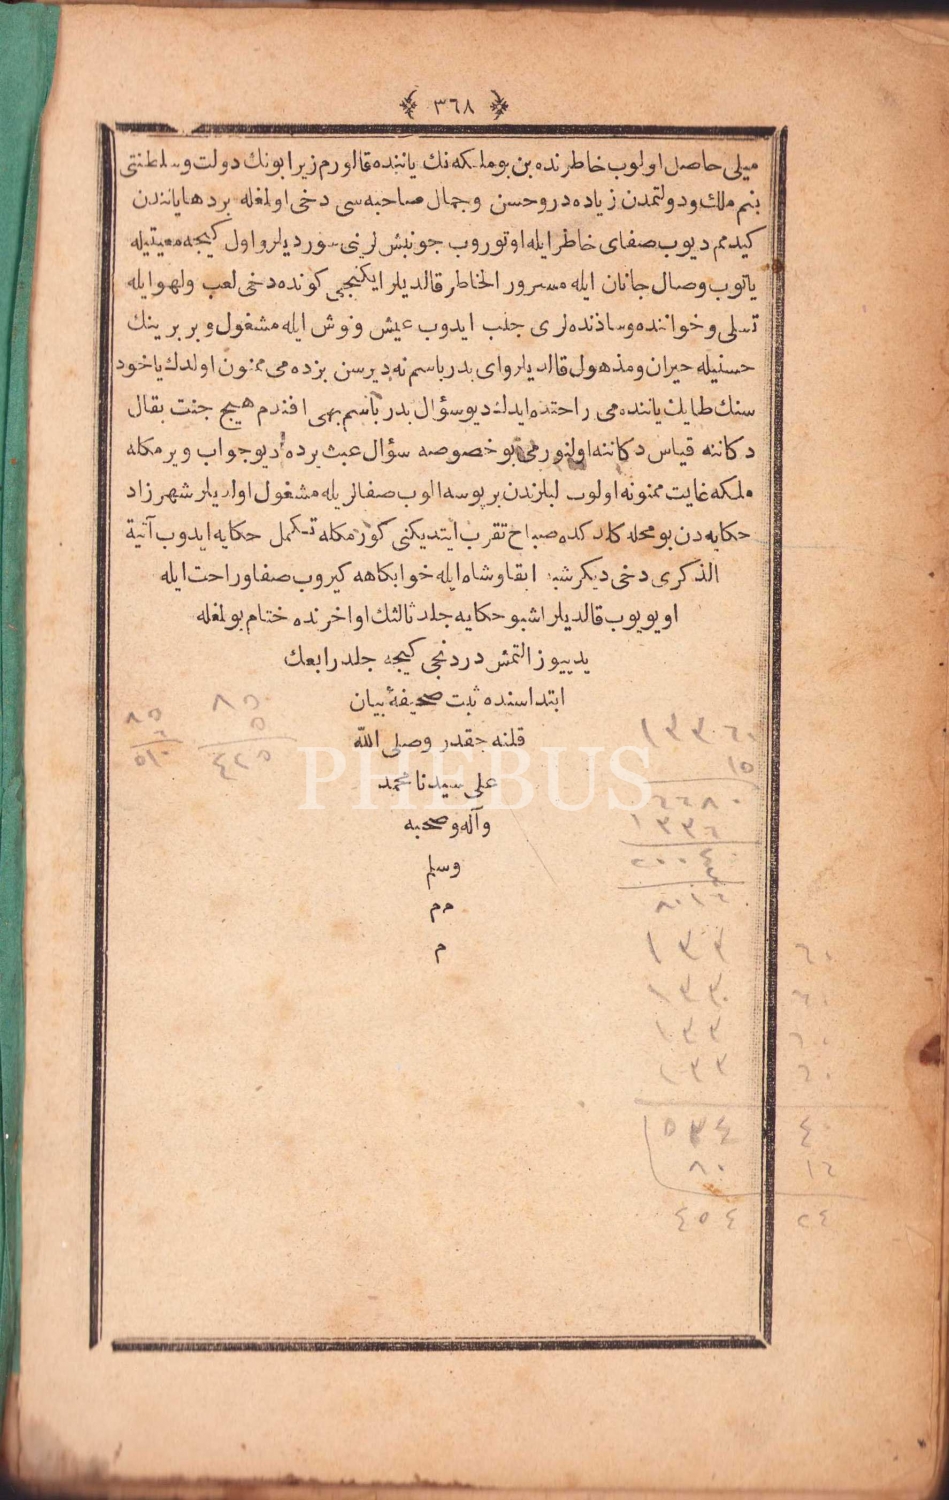 ٣٦٨
ميلى حاصل اولوب خاطرنده بن بو ملكه نك ياننده قالورم زيرا بونك دولت و سلطنتى
بنم ملك و دولتمدن زياده در و حسن و جمال صاحبه سى دخى اولمغله بر دها ياندن
كيدمم ديوب صفاى خاطر ايله اوتوروب جونبش لرنى سورديلر و اول كيجه معيتيله
ياتوب وصال جانان ايله مسرور الخاطر قالديلر ايكنجى كونده دخى لعب ولهو ايله
تسلى و خواننده و سازنده لرى جلب ايدوب عيش و نوش ايله مشغول و بر برينك
حسنيله حيران و مذهول قالديلر واى بدر باسم نه ديرسن بزده مى ممنون اولدك ياخود
سنك طايك ياننده مى راحتده ايدك ديو سؤال بدر باسم بهى افندم هيچ جنت بقال
دكاننه قياس اولنورمى بو خصوصه سؤال عبث برده در ديو جواب ويرمكله
ملكه غايت ممنونه اولوب لبلرندن بر بوسه الوب صفالريله مشغول اولديلر شهرزاد
حكايه دن بو محله كلدكده صباح تقرب ايتديكنى كورمكله تكمل حكايه ايدوب آتية
الذكرى دخى ديكر شبه ابقا و شاه ايله خوابكاهه كيروب صفا و راحت ايله
اويويوب قالديلر اشبو حكايه جلد ثالثك اواخرنده ختام بولمغله
يديوز التمش دردنجى كيجه جلد رابعك
ابتداسنده ثبت صحيفهٔ بيان
قلنه جقدر وصلى الله
على سيدنا محمد
وآله وصحبه
وسلم
م م
م
٨٥
٥
٤٢٥
٨٥
٦
٥١٠
١٣٣٦٠
١٥
٦٦٨٠
١٣٣٦
١٣٣ ٦٠
١٣٣٠ ٦٠
١٣٣ ٦٠
١٣٣ ٦٠
٥٣٤ ٤٠
٨٠ ١٦
٤٥٤ ٢٤
PHEBUS